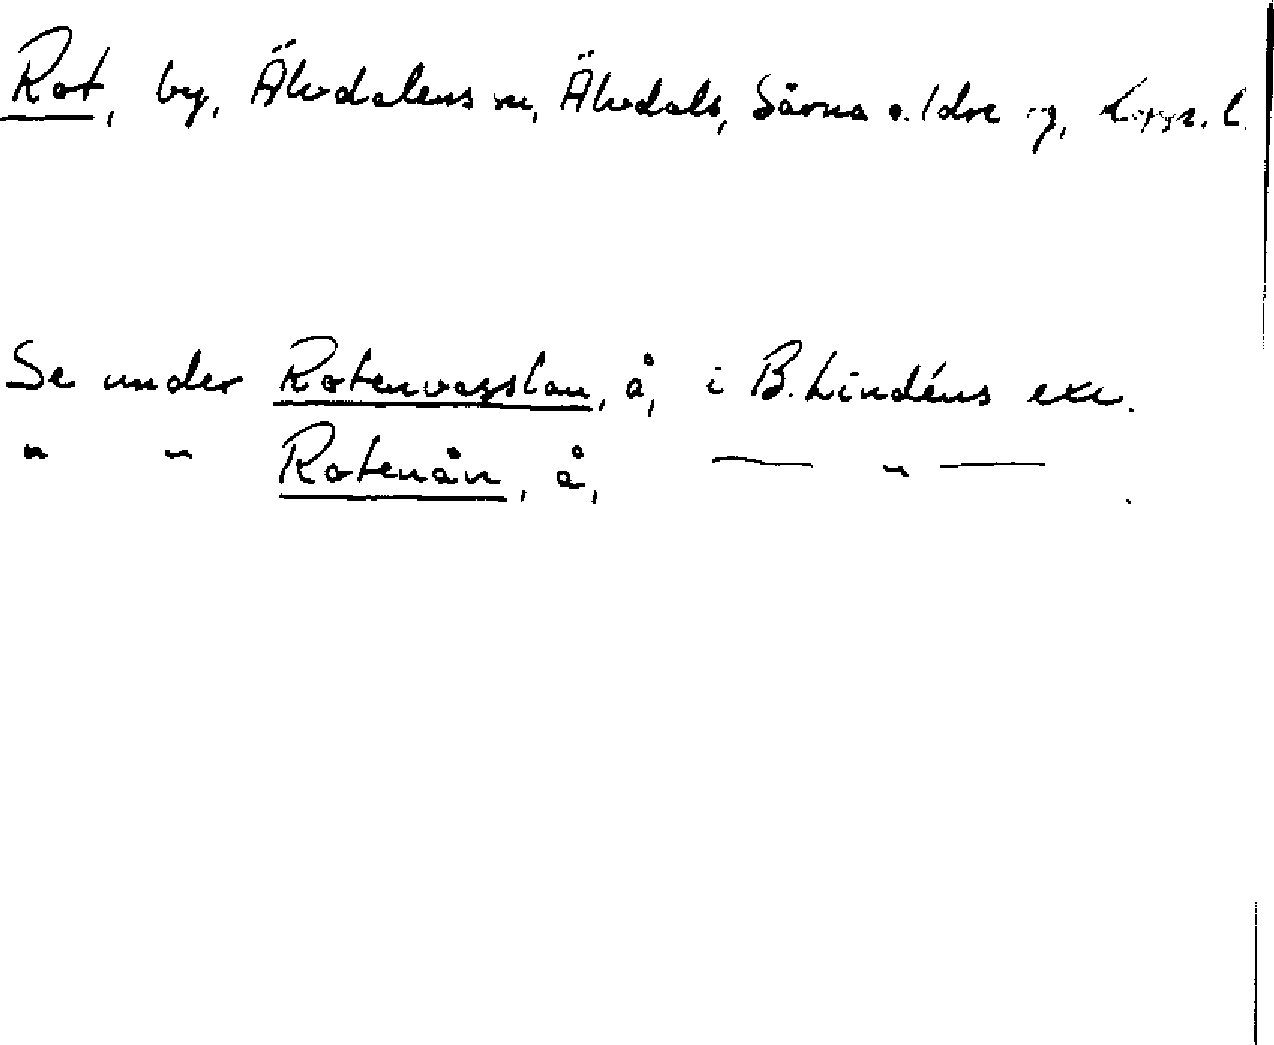 Rot, by, Älvdalens sn, Älvdals, Särna o. Idre tg, Kopp. l.
Se under Rotenvasslan, å, i B. Lindéns exc.
" " Rotenån, å, — " — .